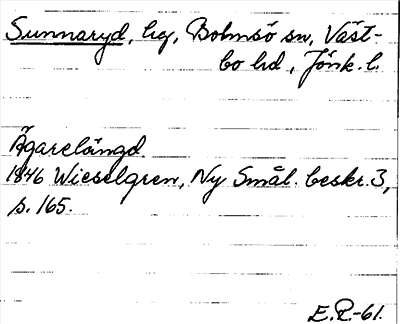 Sunnaryd, hg, Bolmsö sn, Väst-
bo hd, Jönk. l.
Ägarelängd.
1846 Wieselgren, Ny Smål. beskr. 3,
s. 165.
E.P.-61.